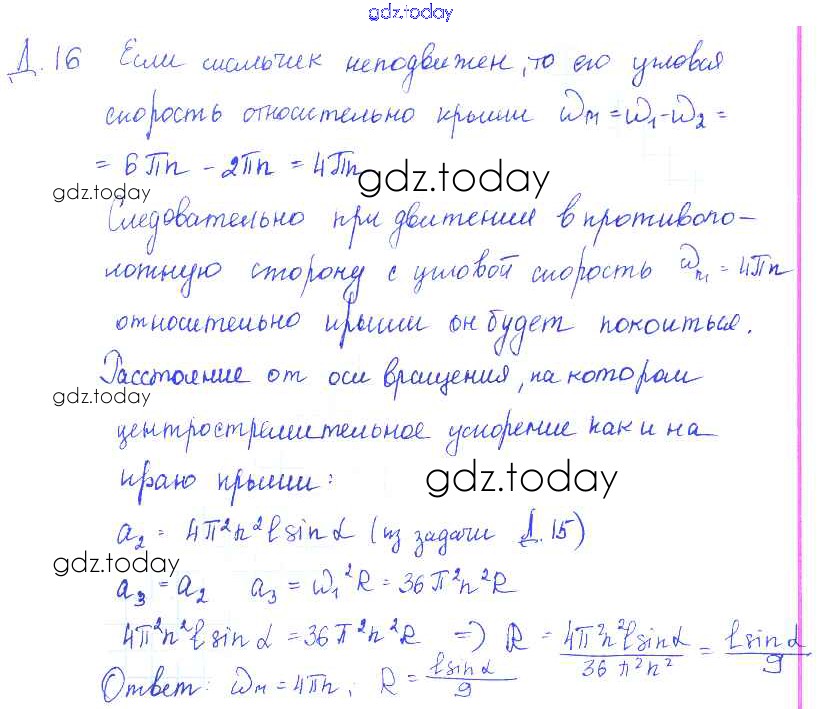 gdz.today
Д.16 Если мальчик неподвижен, то его угловая
скорость относительно крыши ωм = ω₁-ω₂ =
= 6πn - 2πn = 4πn
gdz.today
gdz.today
Следовательно при движении в противопо-
ложную сторону с угловой скорость ωм = 4πn
относительно крыши он будет покоиться.
Расстояние от оси вращения, на котором
gdz.today
центростремительное ускорение как и на
краю крыши:
gdz.today
a₂ = 4π²n²l sin α (из задачи Д.15)
gdz.today
a₃ = a₂ a₃ = ω₁²R = 36π²n²R
4π²n²l sin α = 36π²n²R => R = 4π²n²l sin α / 36π²n² = l sin α / 9
Ответ: ωм = 4πn; R = l sin α / 9